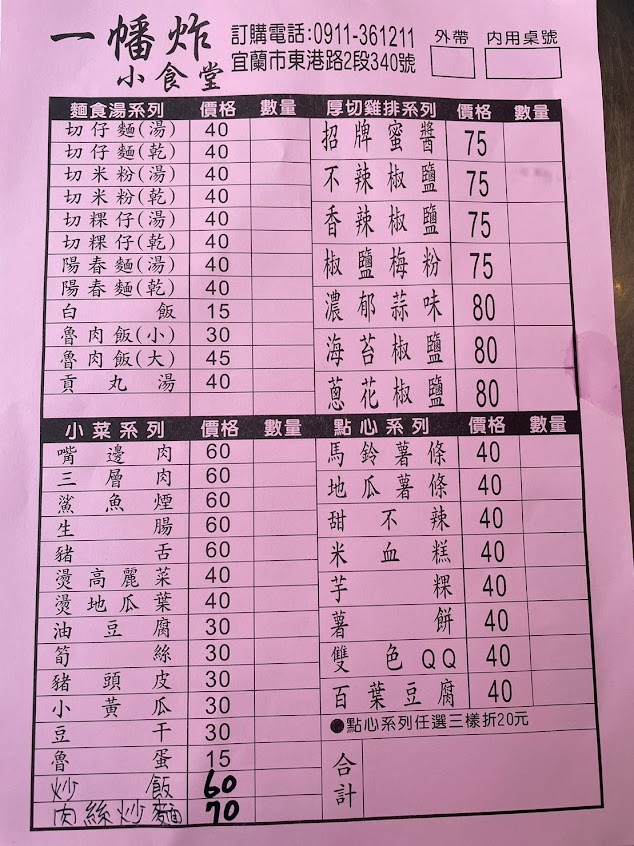 一幡炸
小食堂
訂購電話:0911-361211
宜蘭市東港路2段340號
外帶
內用桌號
麵食湯系列 價格 數量
切仔麵(湯) 40
切仔麵(乾) 40
切米粉(湯) 40
切米粉(乾) 40
切粿仔(湯) 40
切粿仔(乾) 40
陽春麵(湯) 40
陽春麵(乾) 40
白飯 15
魯肉飯(小) 30
魯肉飯(大) 45
貢丸湯 40
厚切雞排系列 價格 數量
招牌蜜醬 75
不辣椒鹽 75
香辣椒鹽 75
椒鹽梅粉 75
濃郁蒜味 80
海苔椒鹽 80
蔥花椒鹽 80
小菜系列 價格 數量
嘴邊肉 60
三層肉 60
鯊魚煙 60
生腸 60
豬舌 60
燙高麗菜 40
燙地瓜葉 40
油豆腐 30
筍絲 30
豬頭皮 30
小黃瓜 30
豆干 30
魯蛋 15
炒飯 60
肉絲炒麵 70
點心系列 價格 數量
馬鈴薯條 40
地瓜薯條 40
甜不辣 40
米血糕 40
芋粿 40
薯餅 40
雙色QQ 40
百葉豆腐 40
●點心系列任選三樣折20元
合計